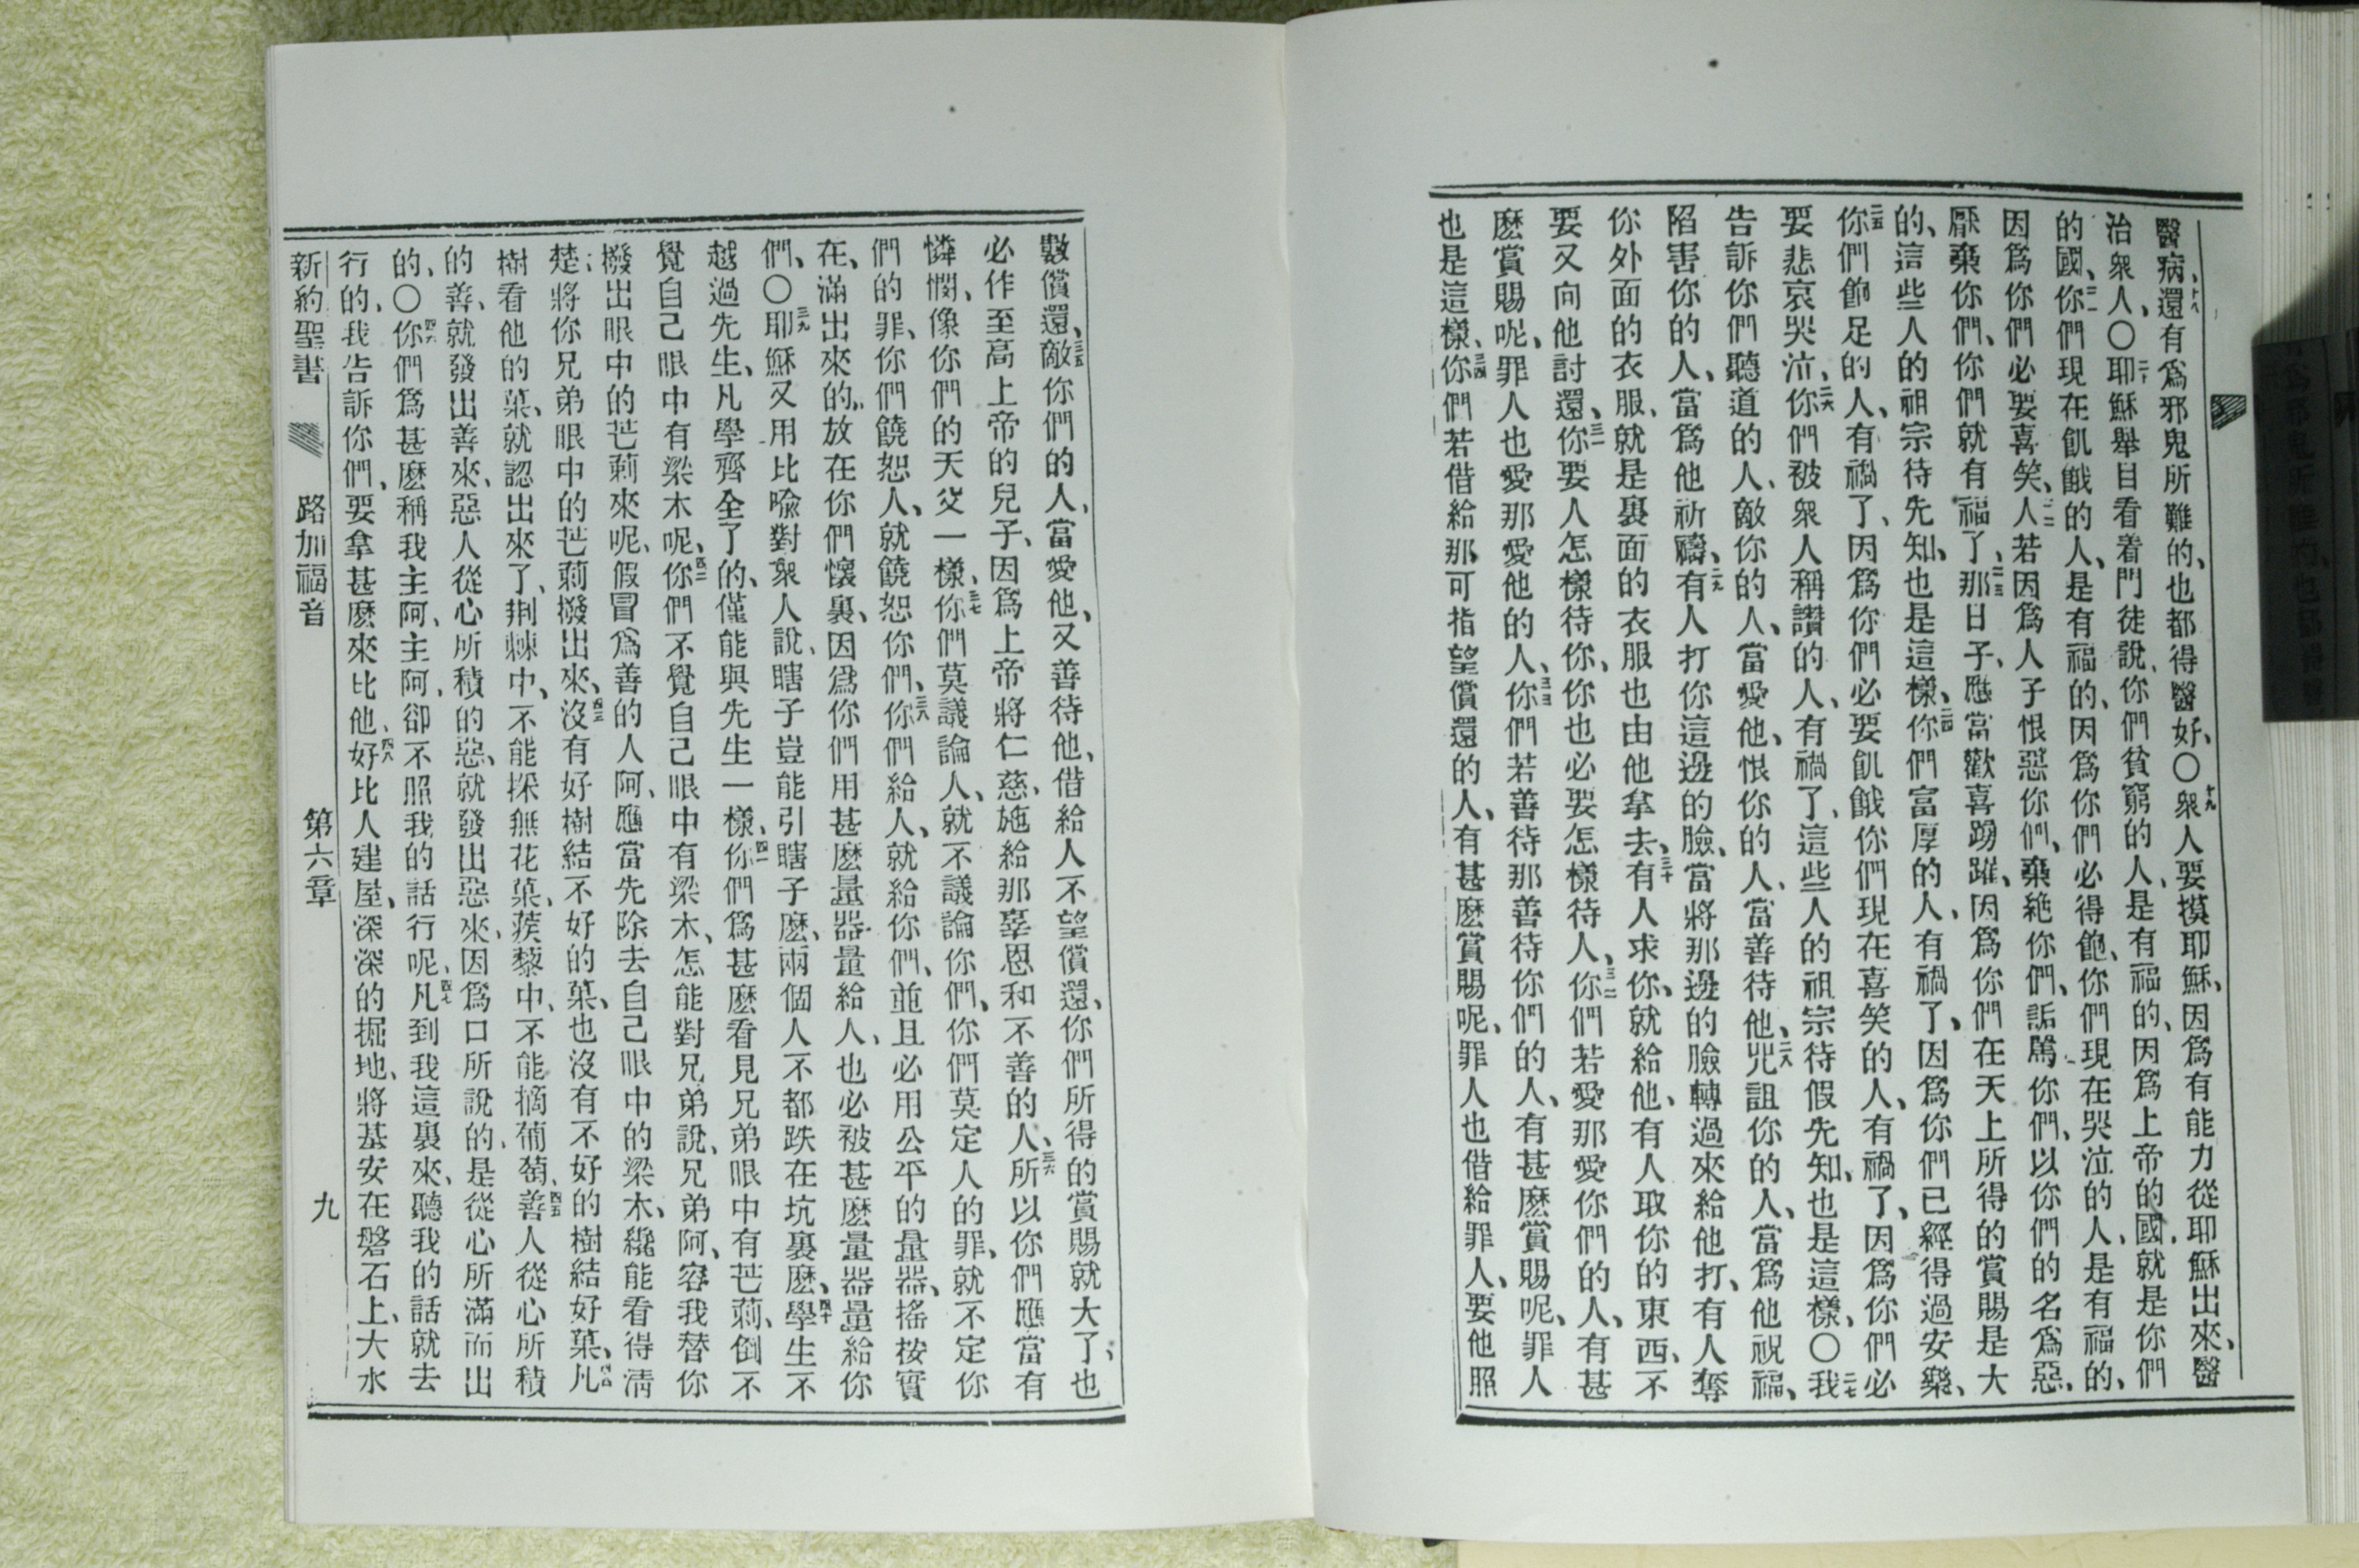 醫病、十八還有爲邪鬼所難的、也都得醫好、〇十九衆人要摸耶穌、因爲有能力從耶穌出來、醫
治衆人、〇二十耶穌舉目看着門徒說、你們貧窮的人、是有福的、因爲上帝的國、就是你們
的國、二一你們現在飢餓的人、是有福的、因爲你們必得飽、你們現在哭泣的人、是有福的、
因爲你們必要喜笑、二二人若因爲人子恨惡你們、棄絕你們、詬罵你們、以你們的名爲惡、
厭棄你們、你們就有福了、二三那日子、應當歡喜踴躍、因爲你們在天上所得的賞賜是大
的、這些人的祖宗待先知、也是這樣、二四你們富厚的人、有禍了、因爲你們已經得過安樂、
二五你們飽足的人、有禍了、因爲你們必要飢餓你們現在喜笑的人、有禍了、因爲你們必
要悲哀哭泣、二六你們被衆人稱讚的人、有禍了、這些人的祖宗待假先知、也是這樣、〇二七我
告訴你們聽道的人、敵你的人、當愛他、恨你的人、當善待他、二八咒詛你的人、當爲他祝福、
陷害你的人、當爲他祈禱、二九有人打你這邊的臉、當將那邊的臉轉過來給他打、有人奪
你外面的衣服、就是裏面的衣服也由他拿去、三十有人求你、就給他、有人取你的東西、不
要又向他討還、三一你要人怎樣待你、你也必要怎樣待人、三二你們若愛那愛你們的人、有甚
麽賞賜呢、罪人也愛那愛他的人、三三你們若善待那善待你們的人、有甚麽賞賜呢、罪人
也是這樣、三四你們若借給那可指望償還的人、有甚麽賞賜呢、罪人也借給罪人、要他照
數償還、三五敵你們的人、當愛他、又善待他、借給人不望償還、你們所得的賞賜就大了、也
必作至高上帝的兒子、因爲上帝將仁慈、施給那辜恩和不善的人、三六所以你們應當有
憐憫、像你們的天父一樣、三七你們莫議論人、就不議論你們、你們莫定人的罪、就不定你
們的罪、你們饒恕人、就饒恕你們、三八你們給人、就給你們、並且必用公平的量器、搖按實
在、滿出來的、放在你們懷裏、因爲你們用甚麽量器量給人、也必被甚麽量器量給你
們、〇三九耶穌又用比喻對衆人說、瞎子豈能引瞎子麽、兩個人不都跌在坑裏麽、四十學生不
越過先生、凡學齊全了的、僅能與先生一樣、四一你們爲甚麽看見兄弟眼中有芒莿、倒不
覺自己眼中有梁木呢、四二你們不覺自己眼中有梁木、怎能對兄弟說、兄弟阿、容我替你
撥出眼中的芒莿來呢、假冒爲善的人阿、應當先除去自己眼中的梁木、纔能看得淸
楚、將你兄弟眼中的芒莿撥出來、四三沒有好樹結不好的菓、也沒有不好的樹結好菓、四四凡
樹看他的菓、就認出來了、荆棘中、不能採無花菓、蒺藜中、不能摘葡萄、四五善人從心所積
的善、就發出善來、惡人從心所積的惡、就發出惡來、因爲口所說的、是從心所滿而出
的、〇四六你們爲甚麽稱我主阿、主阿、卻不照我的話行呢、四七凡到我這裏來、聽我的話就去
行的、我告訴你們、要拿甚麽來比他、四八好比人建屋、深深的掘地、將基安在磐石上、大水
新約聖書 路加福音 第六章 九